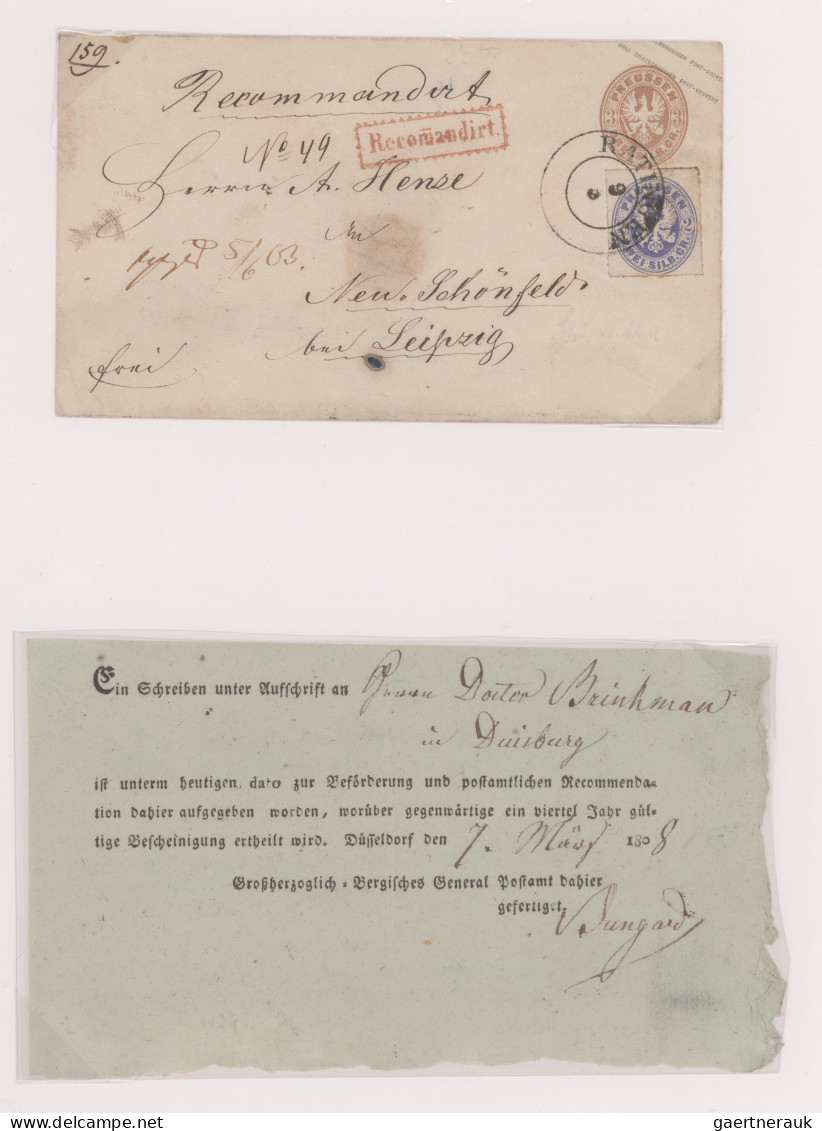 159.
Recommandirt
No 49
Recomandirt.
Herrn A. Henze
in
5/6 63.
Neu-Schönfeld
bei Leipzig
frei
POST-COUVERT
PREUSSEN
SILB. GR.
PREUSSEN
ZWEI SILB. GR.
6 6
Ein Schreiben unter Aufschrift an Herrn Doctor Brinkman
in Duisburg
ist unterm heutigen dato zur Beförderung und postamtlichen Recommenda-
tion dahier aufgegeben worden, worüber gegenwärtige ein viertel Jahr gül-
tige Bescheinigung ertheilt wird. Düsseldorf den 7. März 1808
Großherzoglich-Bergisches General Postamt dahier
gefertiget.
Bungard
gaertnerauk